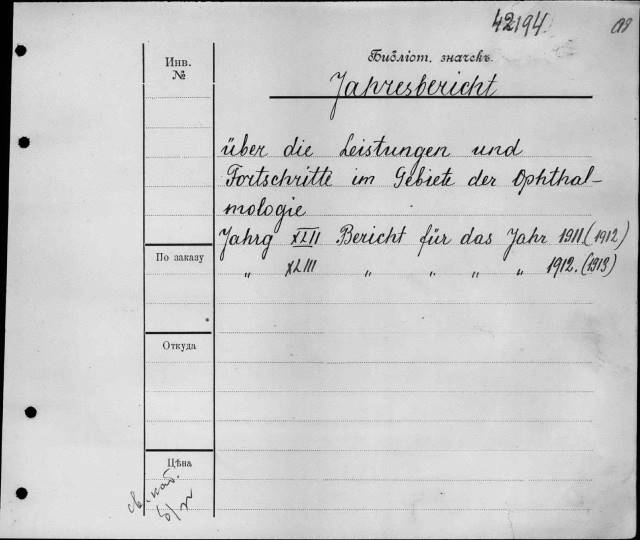 42194.
Инв.
№
Библіот. значекъ.
Jahresbericht
über die Leistungen und
Fortschritte im Gebiete der Ophthal-
mologie
Jahrg XLII Bericht für das Jahr 1911. (1912)
„ XLIII „ „ „ „ 1912. (1913)
По заказу
Откуда
Цѣна